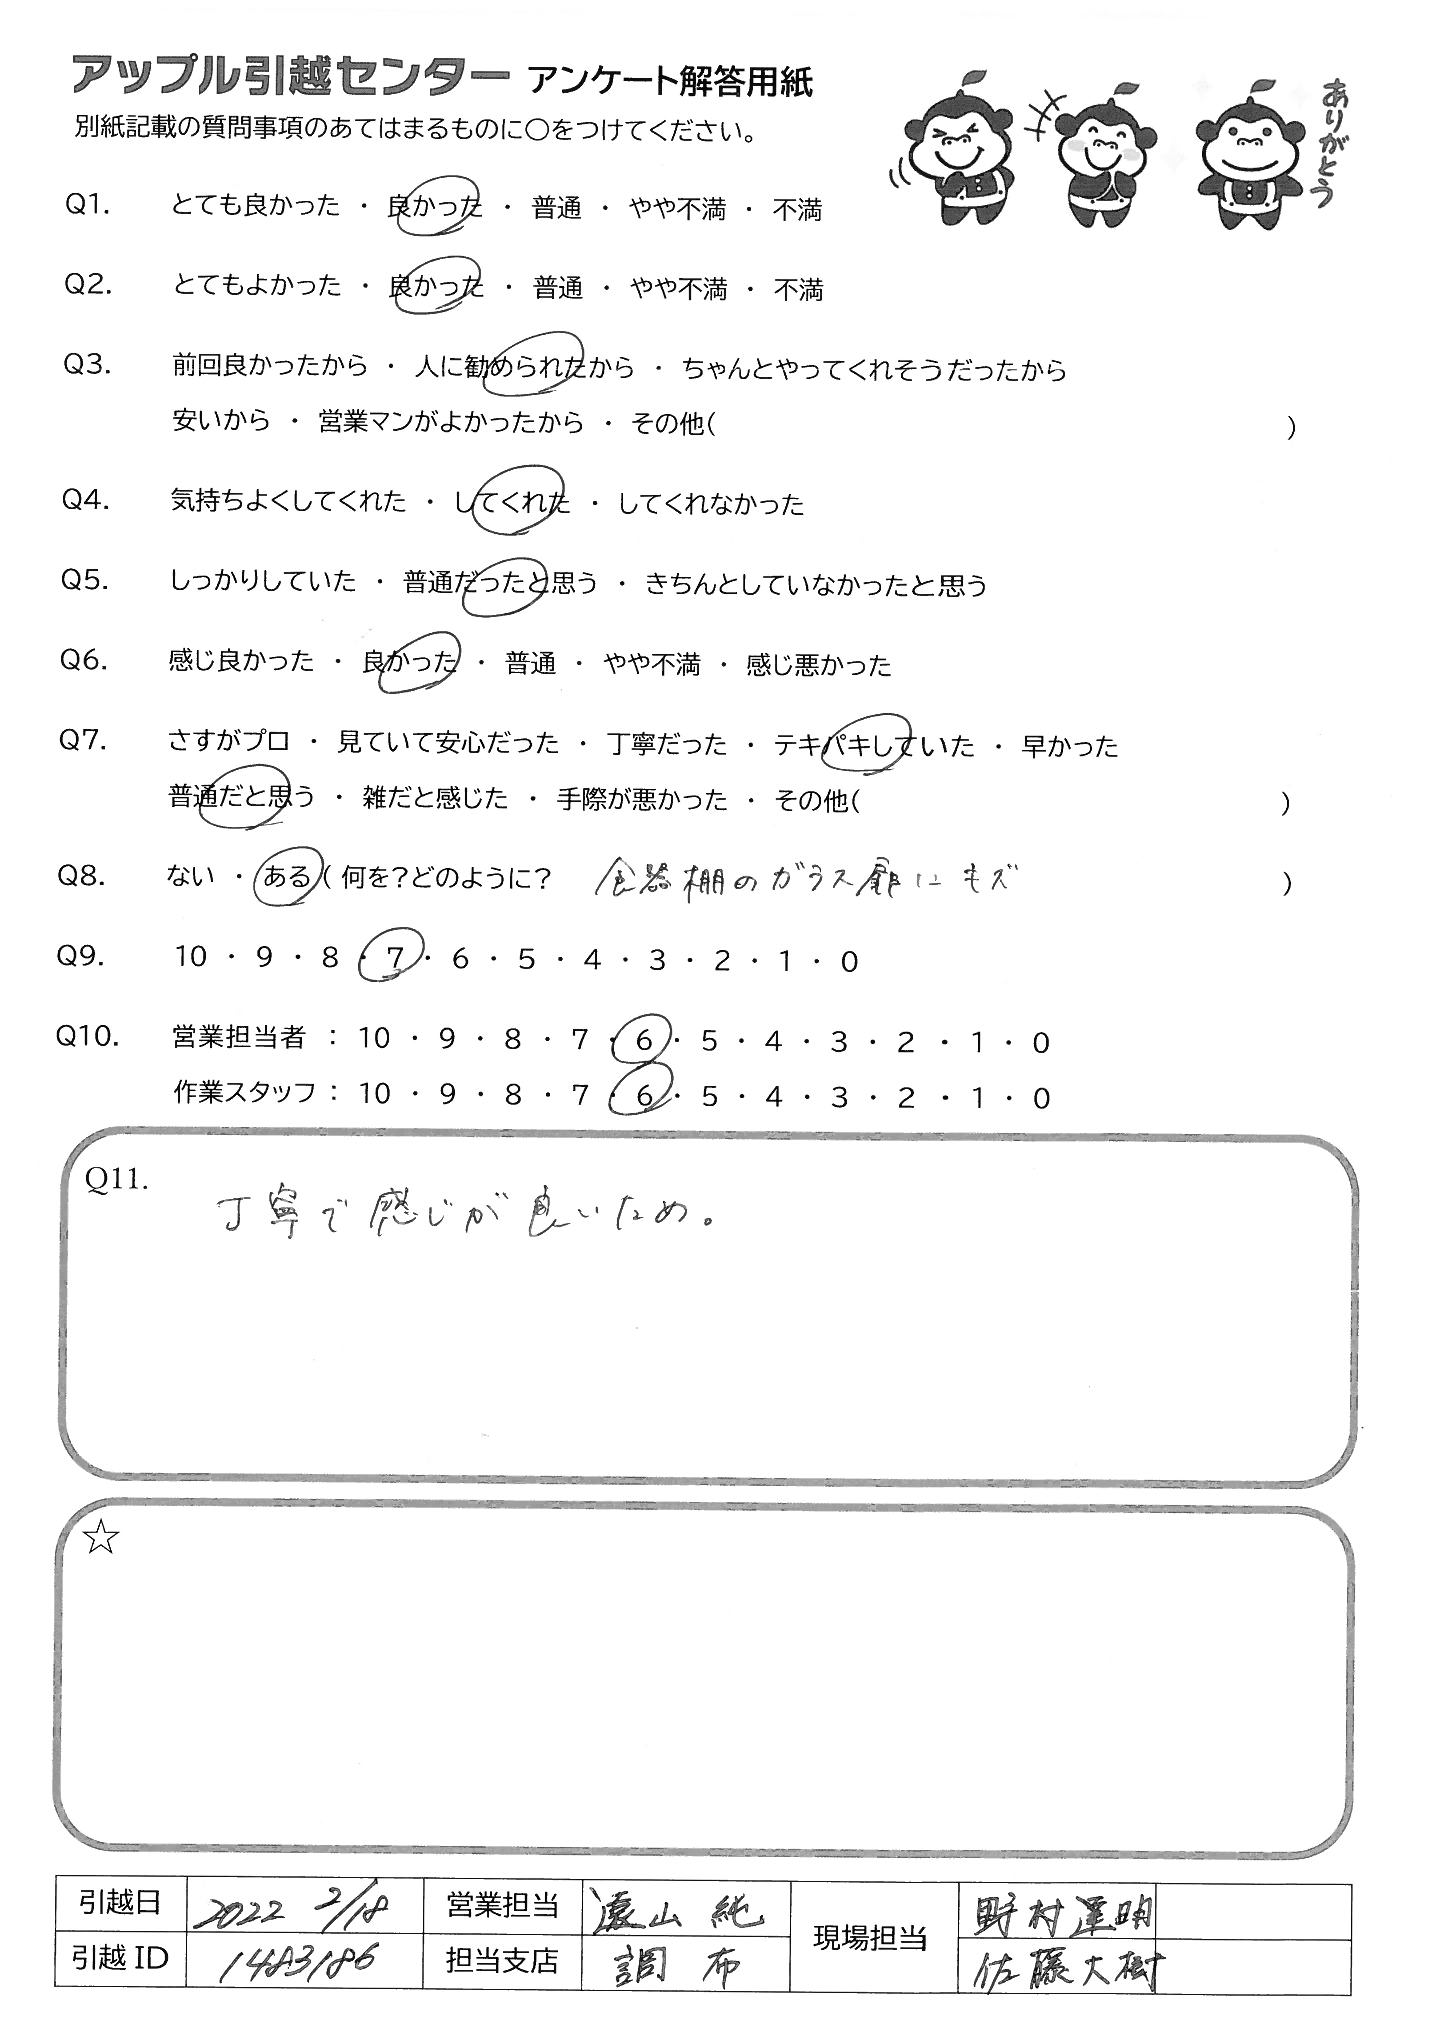 アップル引越センター アンケート解答用紙
別紙記載の質問事項のあてはまるものに○をつけてください。
ありがとう
Q1. とても良かった ・ 良かった ・ 普通 ・ やや不満 ・ 不満
Q2. とてもよかった ・ 良かった ・ 普通 ・ やや不満 ・ 不満
Q3. 前回良かったから ・ 人に勧められたから ・ ちゃんとやってくれそうだったから
安いから ・ 営業マンがよかったから ・ その他( )
Q4. 気持ちよくしてくれた ・ してくれた ・ してくれなかった
Q5. しっかりしていた ・ 普通だったと思う ・ きちんとしていなかったと思う
Q6. 感じ良かった ・ 良かった ・ 普通 ・ やや不満 ・ 感じ悪かった
Q7. さすがプロ ・ 見ていて安心だった ・ 丁寧だった ・ テキパキしていた ・ 早かった
普通だと思う ・ 雑だと感じた ・ 手際が悪かった ・ その他( )
Q8. ない ・ ある ( 何を？どのように？ 食器棚のガラス扉にキズ )
Q9. 10 ・ 9 ・ 8 ・ 7 ・ 6 ・ 5 ・ 4 ・ 3 ・ 2 ・ 1 ・ 0
Q10. 営業担当者 : 10 ・ 9 ・ 8 ・ 7 ・ 6 ・ 5 ・ 4 ・ 3 ・ 2 ・ 1 ・ 0
作業スタッフ : 10 ・ 9 ・ 8 ・ 7 ・ 6 ・ 5 ・ 4 ・ 3 ・ 2 ・ 1 ・ 0
Q11.
丁寧で感じが良いため。
☆
引越日 2022 2/18 営業担当 遠山 純 現場担当 野村達明
引越ID 1483186 担当支店 調布 佐藤大樹